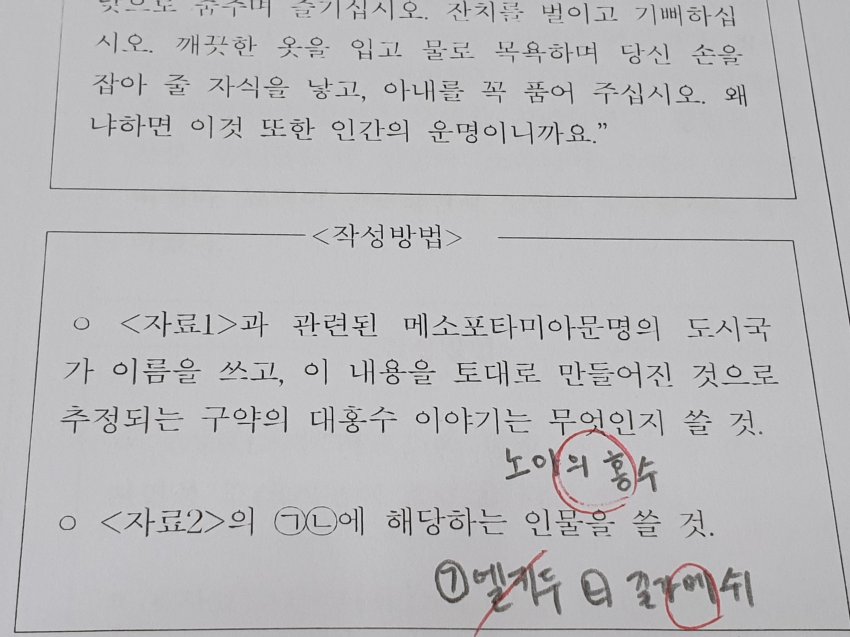 낮으로 춤추며 즐기십시오. 잔치를 벌이고 기뻐하십
시오. 깨끗한 옷을 입고 물로 목욕하며 당신 손을
잡아 줄 자식을 낳고, 아내를 꼭 품어 주십시오. 왜
냐하면 이것 또한 인간의 운명이니까요.”
<작성방법>
○ <자료1>과 관련된 메소포타미아문명의 도시국
가 이름을 쓰고, 이 내용을 토대로 만들어진 것으로
추정되는 구약의 대홍수 이야기는 무엇인지 쓸 것.
노아의 홍수
○ <자료2>의 ㉠㉡에 해당하는 인물을 쓸 것.
㉠ 엘키두 ㉡ 길가메쉬